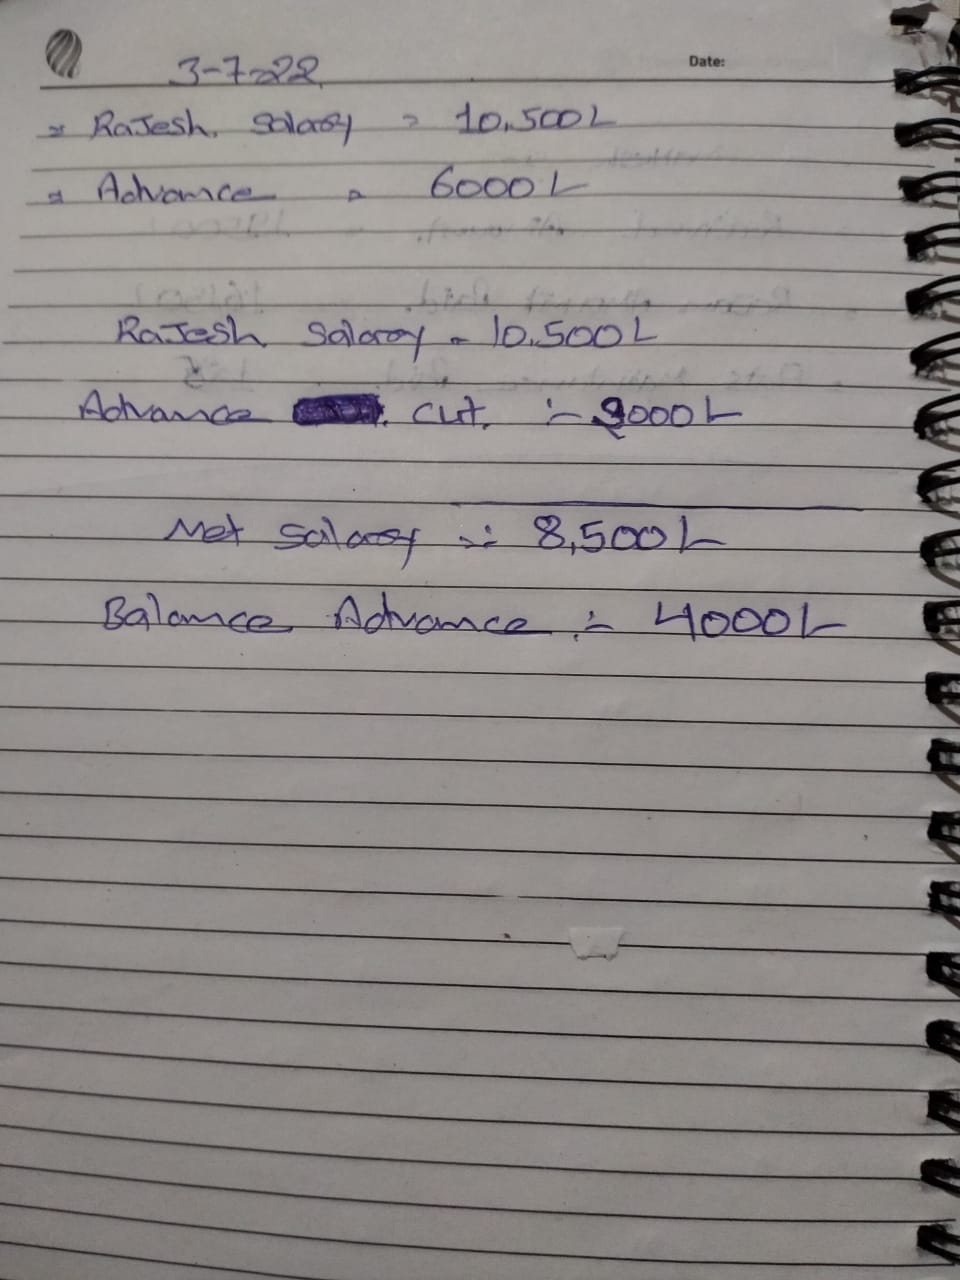 Date:
3-7-22
Rajesh. Salary = 10,500/-
Advance = 6000/-
Rajesh Salary - 10,500/-
Advance cut. :- 2000/-
Net Salary :- 8,500/-
Balance Advance :- 4000/-